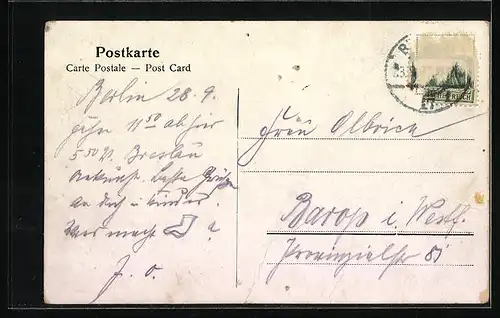 Postkarte
Carte Postale — Post Card
Berlin 28.9.
11 50 ab hier
5 50 N. Breslau
Ankunft. Beste Grüße
an dich u. Kinder.
Was macht ?
J. O.
Frau Olbrich
Barop i. Westf.
Provinzialstr 85